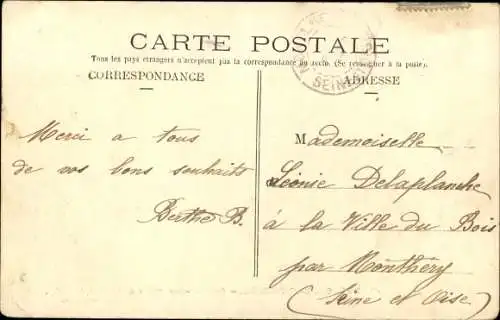 CARTE POSTALE
Tous les pays étrangers n'acceptent pas la correspondance au recto. (Se renseigner à la poste).
CORRESPONDANCE
ADRESSE
Merci a tous
de vos bons souhaits
Berthe B.
Mademoiselle
Léonie Delaplanche
à la Ville du Bois
par Monthéry
(Seine et Oise)
SEINE